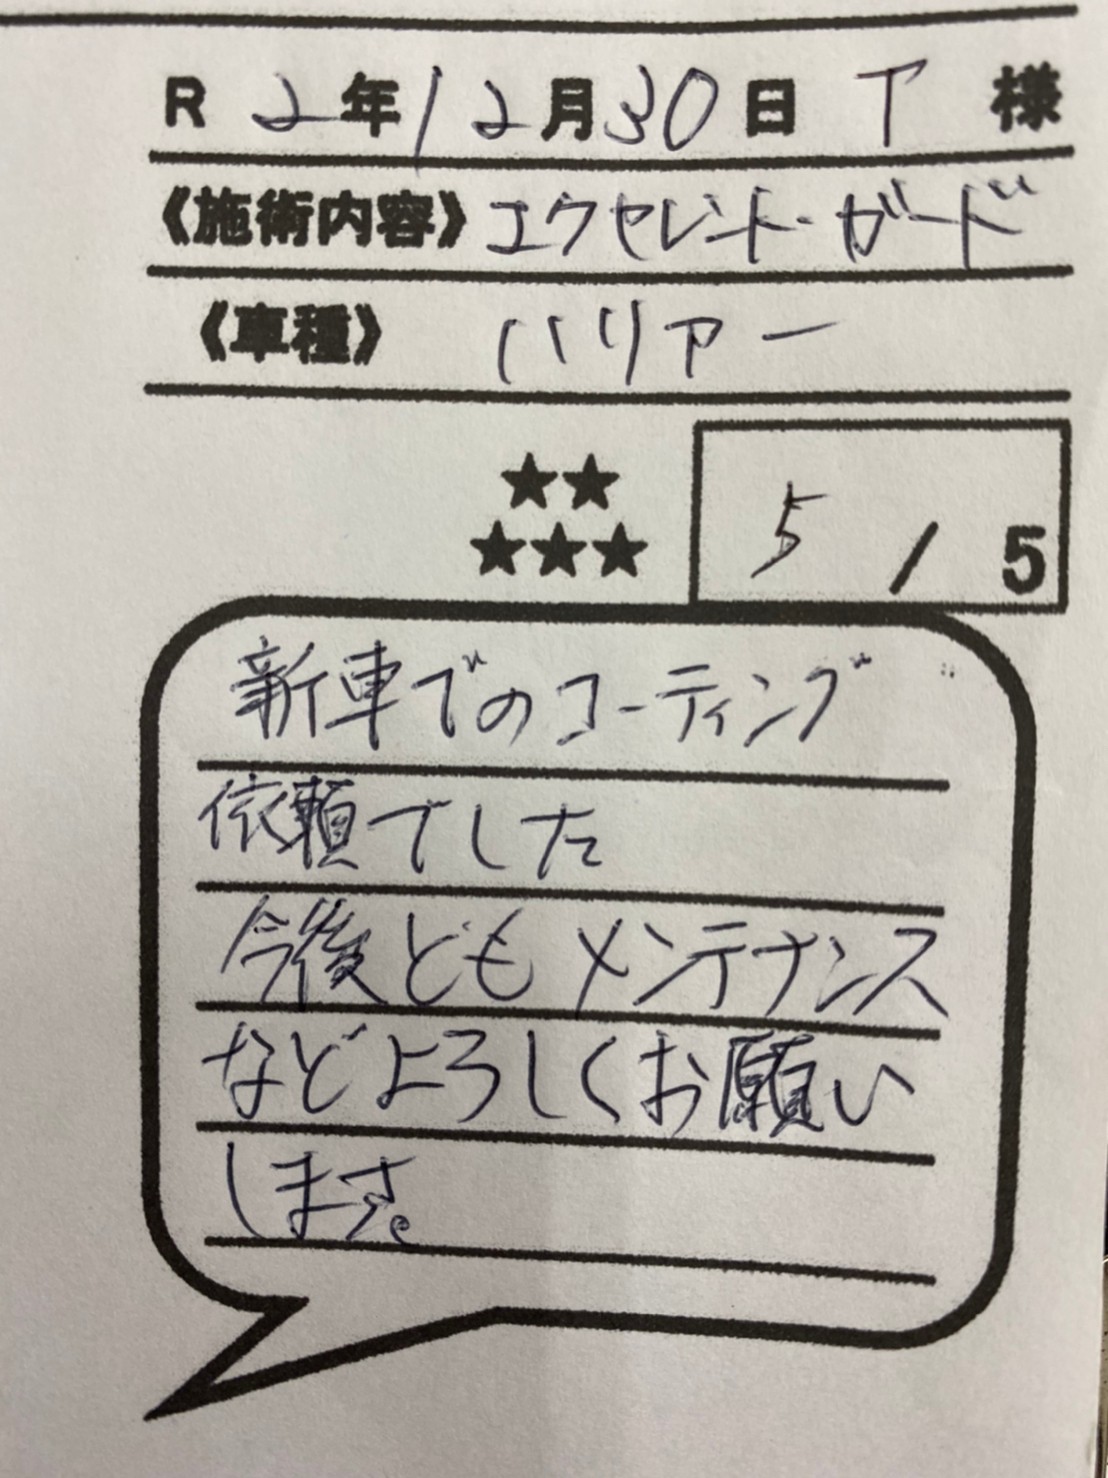 R 2年12月30日 T 様
《施術内容》エクセレント・ガード
《車種》 ハリアー
★★
★★★ 5 / 5
新車でのコーティング
依頼でした
今後ともメンテナンス
などよろしくお願い
します。